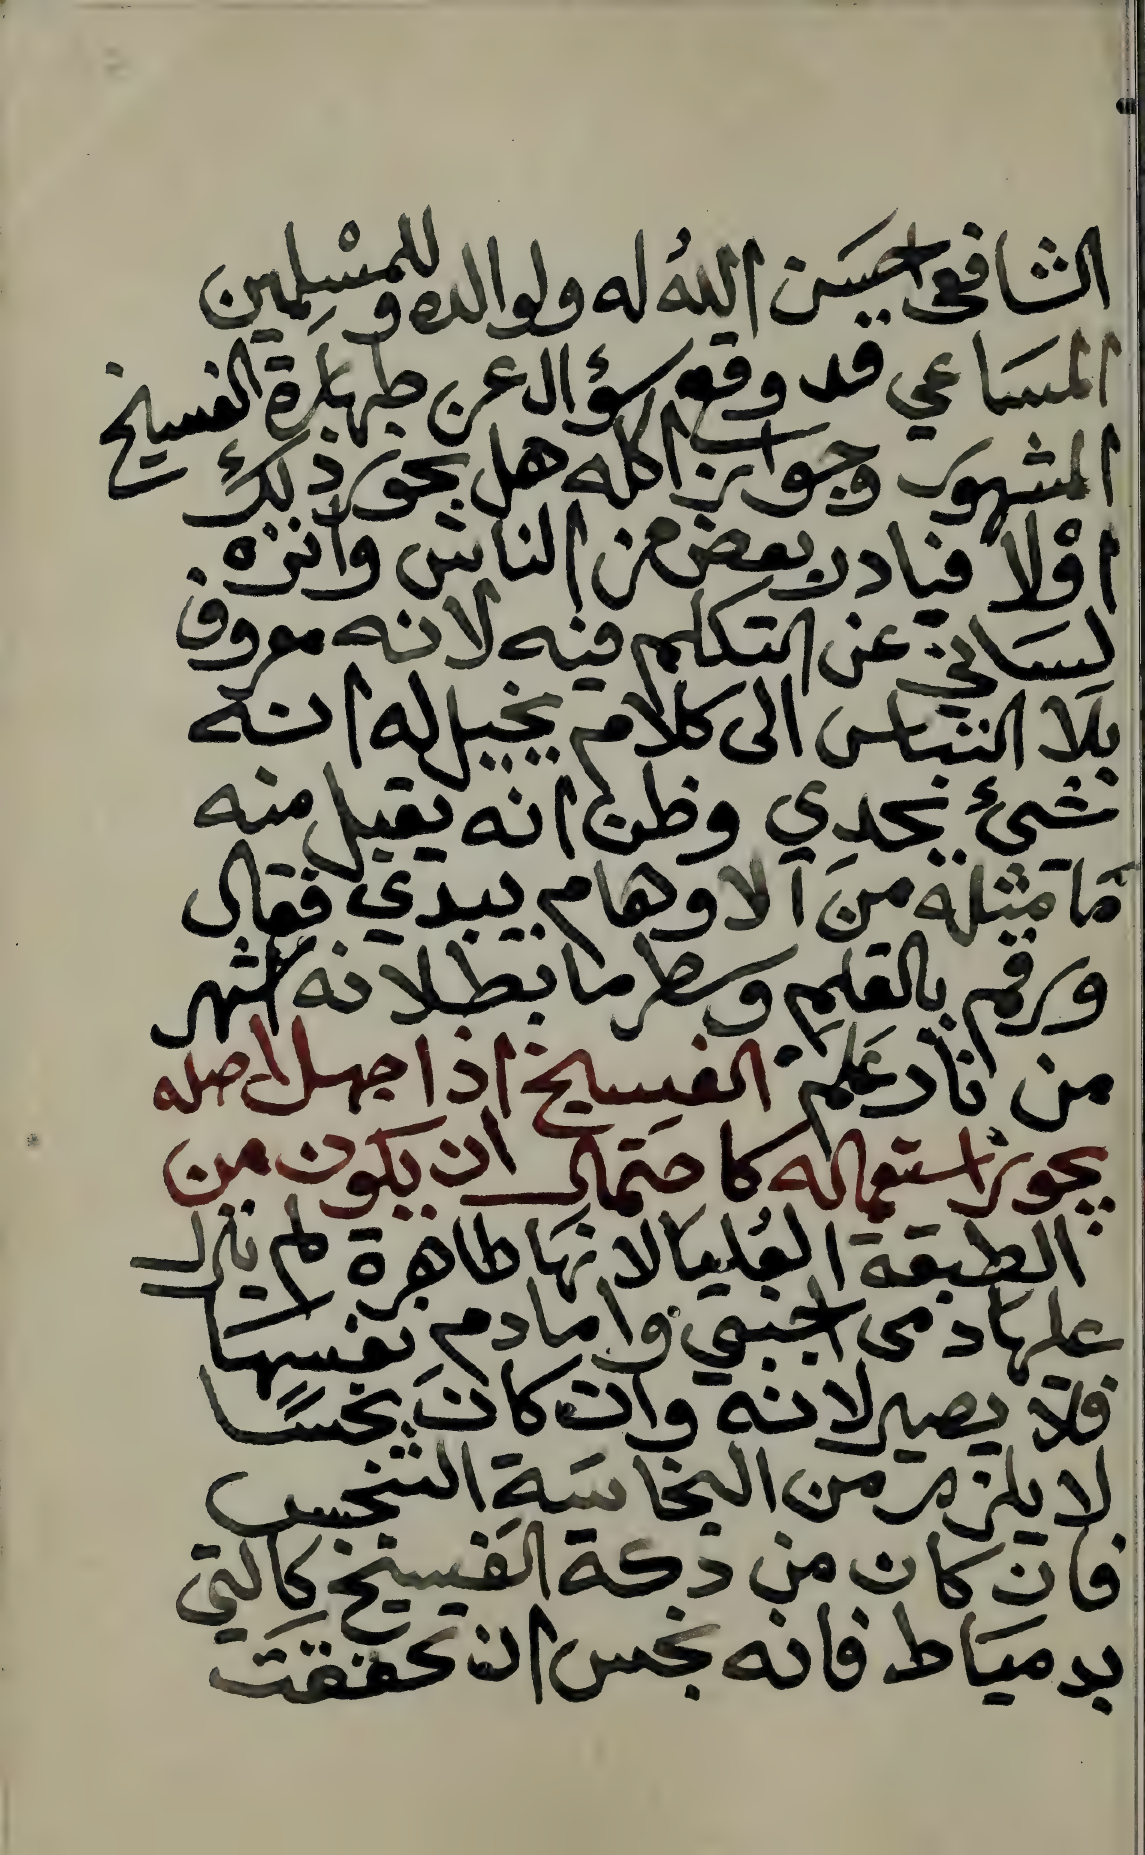 الشافعي احسَن اللهُ له ولوالده وللمسْلِمين
المساعي قد وقع سؤال عن طهارة الفسيخ
المشهور وجواز اكله هل يجوز ذلك
اوْلا فبادر بعض من الناس وانزه
لسَاني عن التكلم فيه لانه معروف
بلَا التباس الى كلام يخيل له انه
شئ يجدي وظن انه يقبل منه
مَا مثله من الاوهام يبدي فقال
ورقم بالقلم وسطر ما بطلانه اشهر
من نار علم الفسيخ اذا جهل اصله
يجوز استعماله كاحتمال ان يكون من
الطبقة العُليا لانهَا طاهرة لم ينزل
عليها دمى اجنبي واما دم نفسهَا
فلا يصير لانه وان كان نجسًا
لا يلزم من النجاسَة التنجس
فان كان من دكة الفسيخ كالتي
بدميَاط فانه نجس ان تحققت